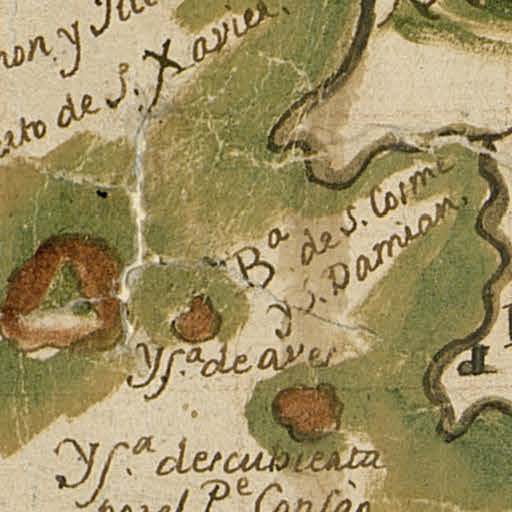 mon. y
erto de S. Xavier.
Bª de S. Cosme
y S. Damian.
Ysª. de aves
Ysª. descubierta
por el Pe Consàg